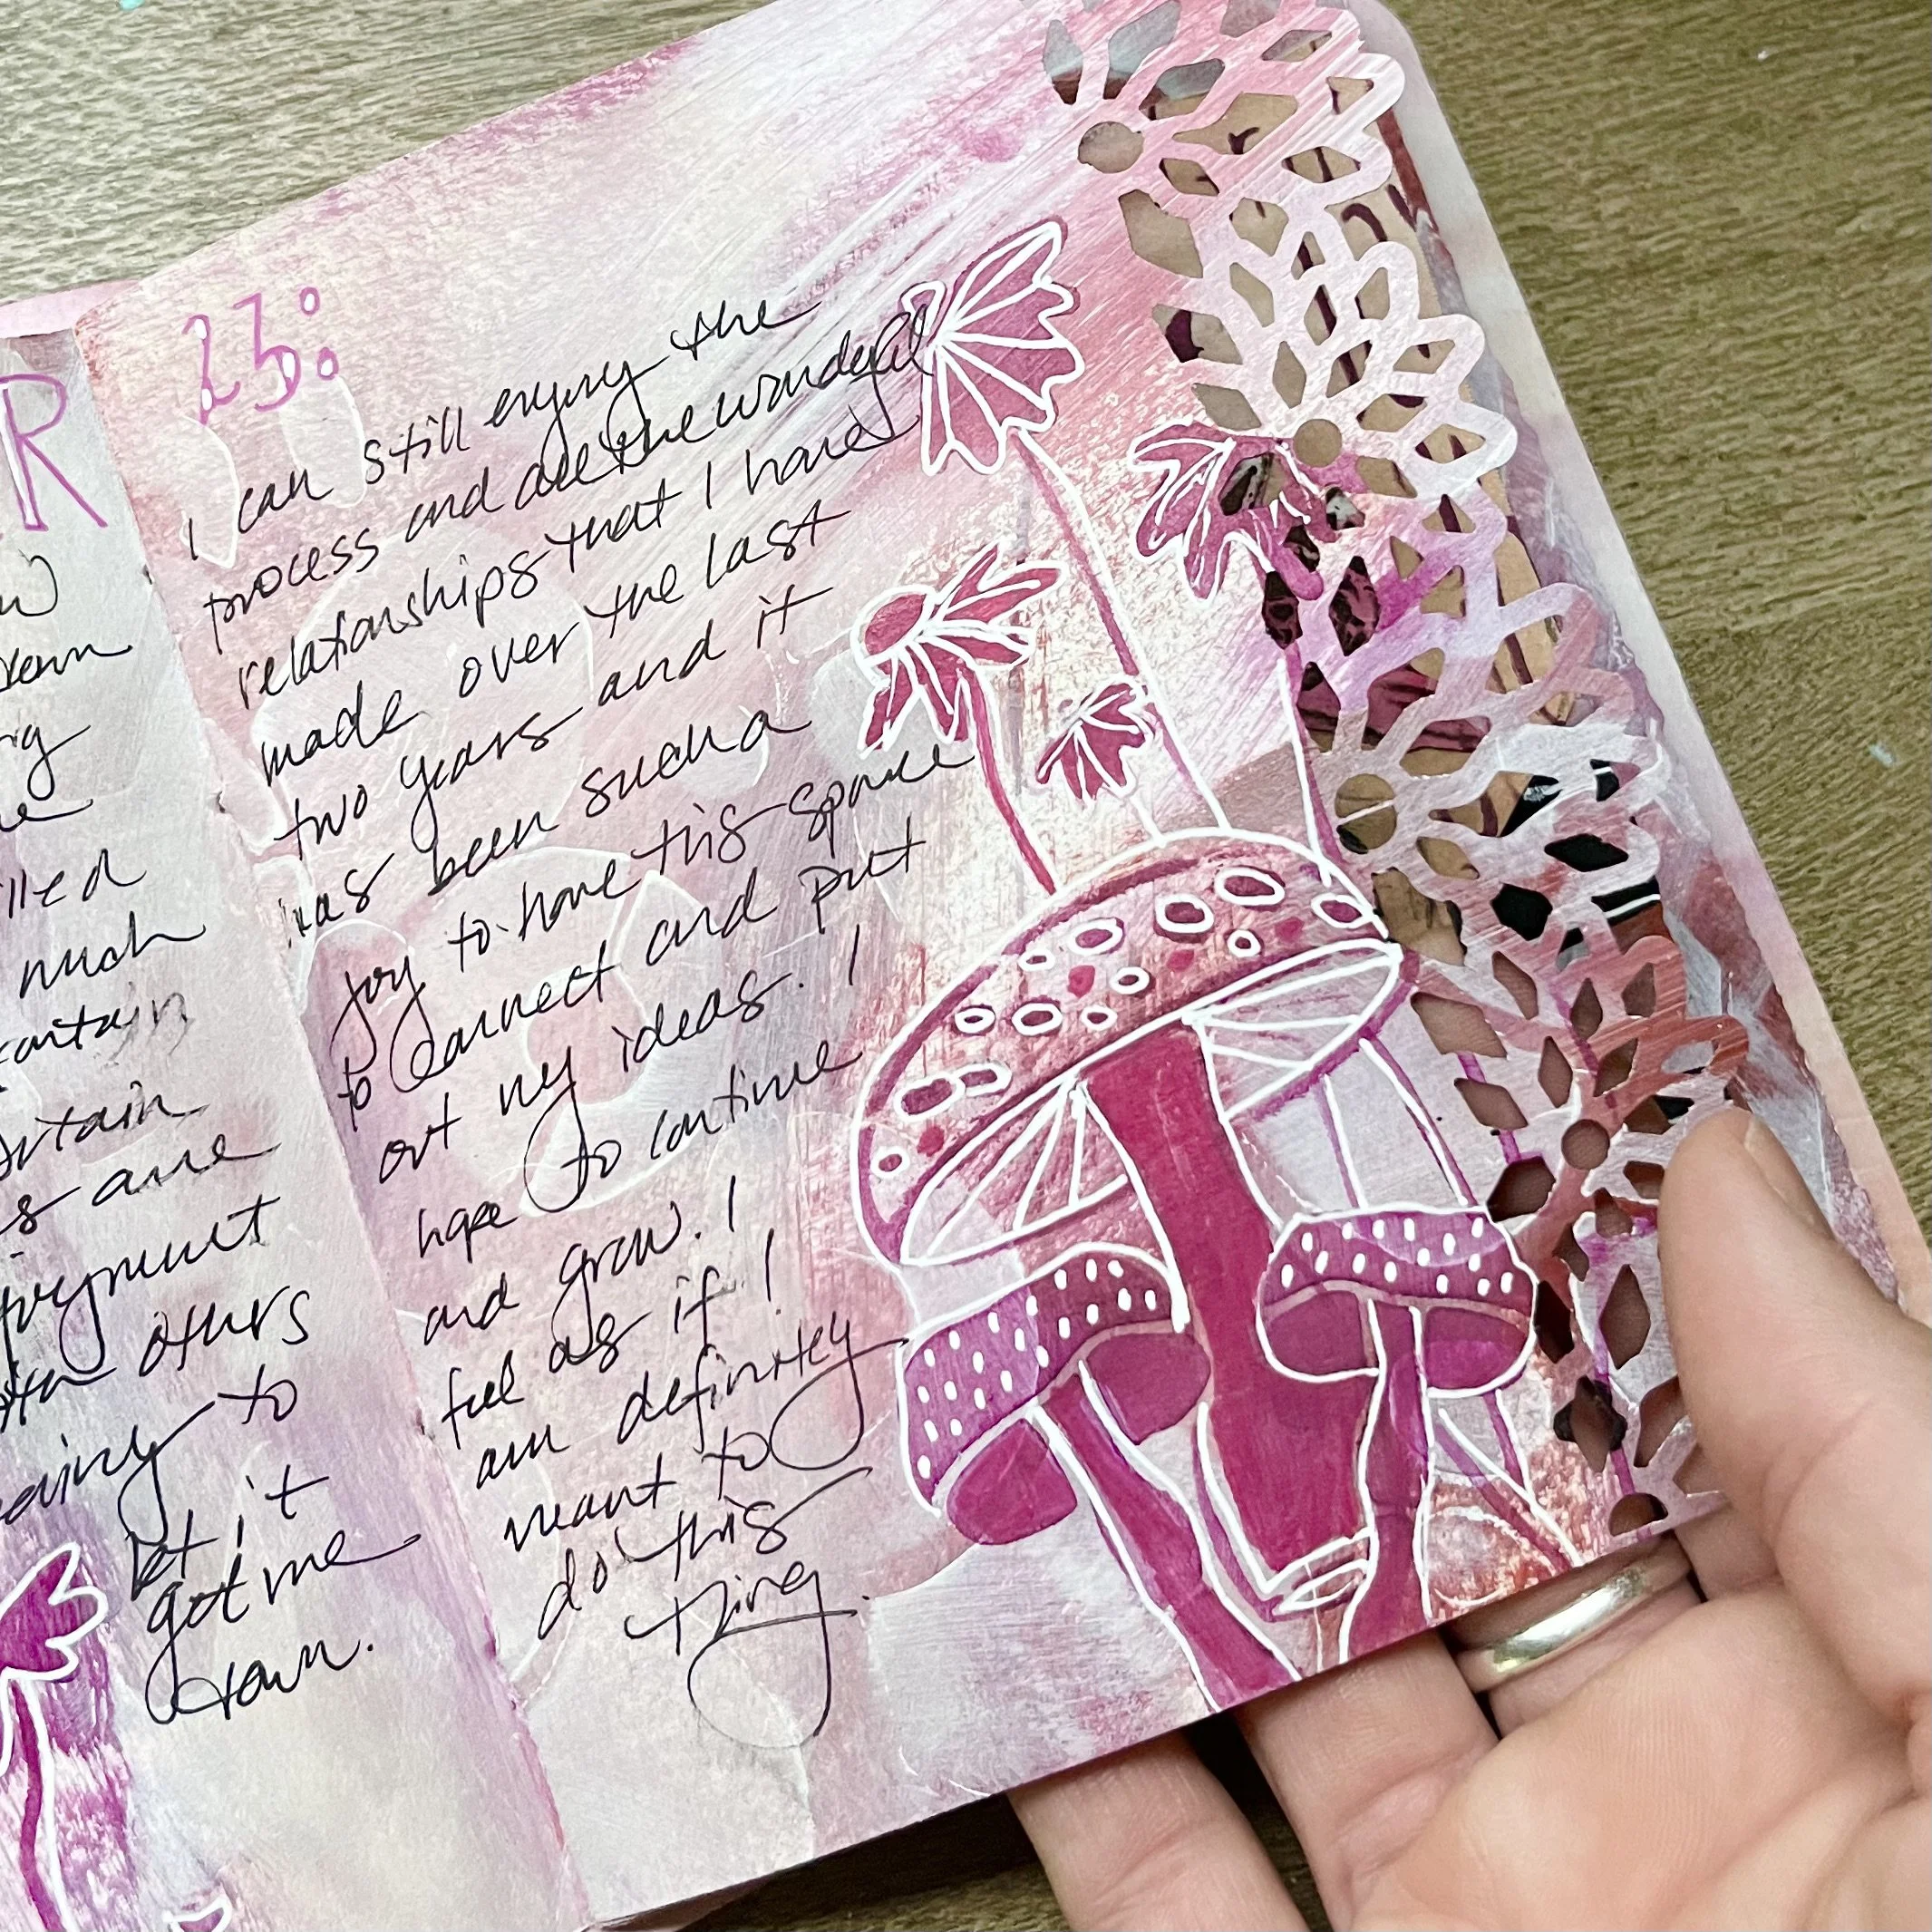 R
much
contain
are
others
to
let it
get me
down.
23:
I can still enjoy the
process and all the wonderful
relationships that I have
made over the last
two years and it
has been such a
joy to have this space
to connect and put
out my ideas. I
hope to continue
and grow. I
feel as if I
am definitely
meant to
do this
thing.